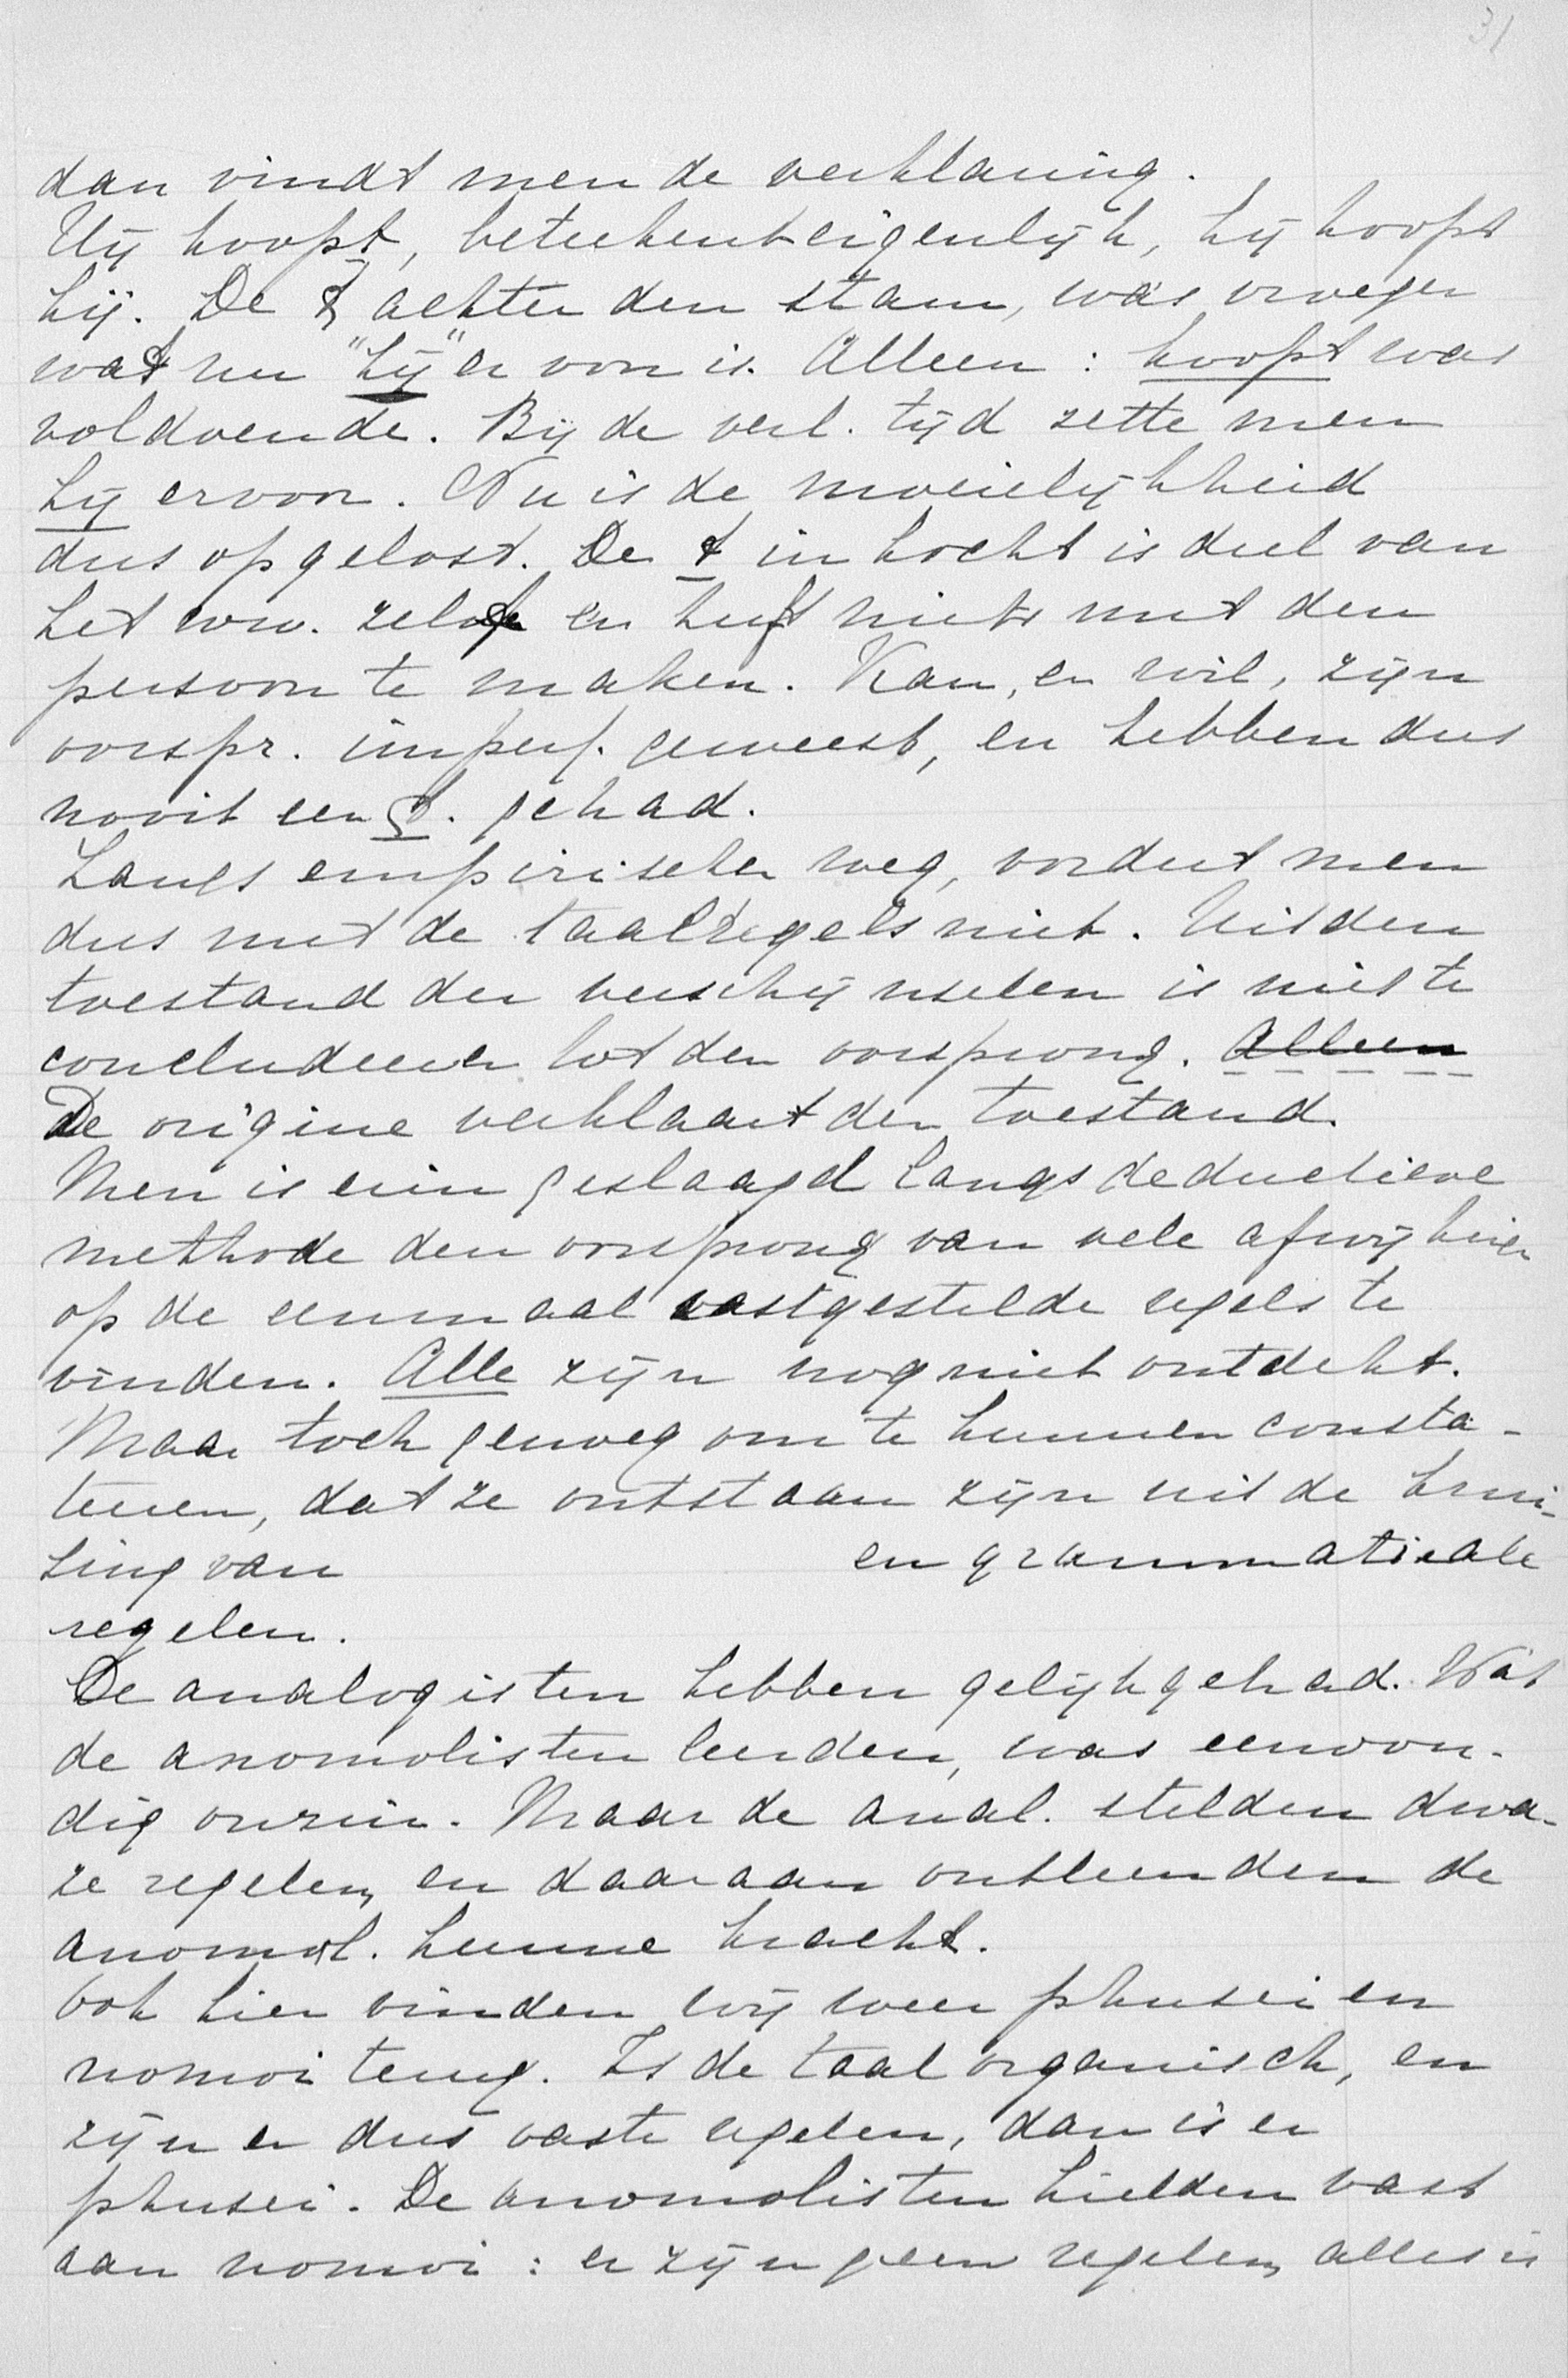 31
dan vindt men de verklaring.
Hij hoopt, beteekent eigenlijk, hij hoopt
hij. De t achter den stam, was vroeger
wat nu "hij" er voor is. Alleen: hoopt was
voldoende. Bij de verl. tijd zette men
hij ervoor. Nu is de moeielijkheid
dus opgelost. De t in kocht is deel van
het ww. zelf en heeft niets met den
persoon te maken. Kan, en wil, zijn
oorspr. imperf. geweest, en hebben dus
nooit een t. gehad.
Langs empirischen weg, vordert men
dus met de taalregels niet. Uit den
toestand der verschijnselen is niet te
concludeeren tot den oorsprong. Alleen
De origine verklaart den toestand.
Men is erin geslaagd langs deductieve
methode den oorsprong van vele afwijkingen
op de eenmaal vastgestelde regels te
vinden. Alle zijn nog niet ontdekt.
Maar toch genoeg om te kunnen consta-
teeren, dat ze ontstaan zijn uit de krui-
sing van en grammaticale
regelen.
De analogisten hebben gelijk gehad. Wat
de anomolisten leerden, was eenvou-
dig onzin. Maar de anal. stelden dwa-
ze regelen, en daaraan ontleenden de
anomol. hunne kracht.
Ook hier vinden wij weer phusei en
nomoi terug. Is de taal organisch, en
zijn er dus vaste regelen, dan is er
phusei. De anomolisten hielden vast
aan nomoi: er zijn geen regelen, alles is